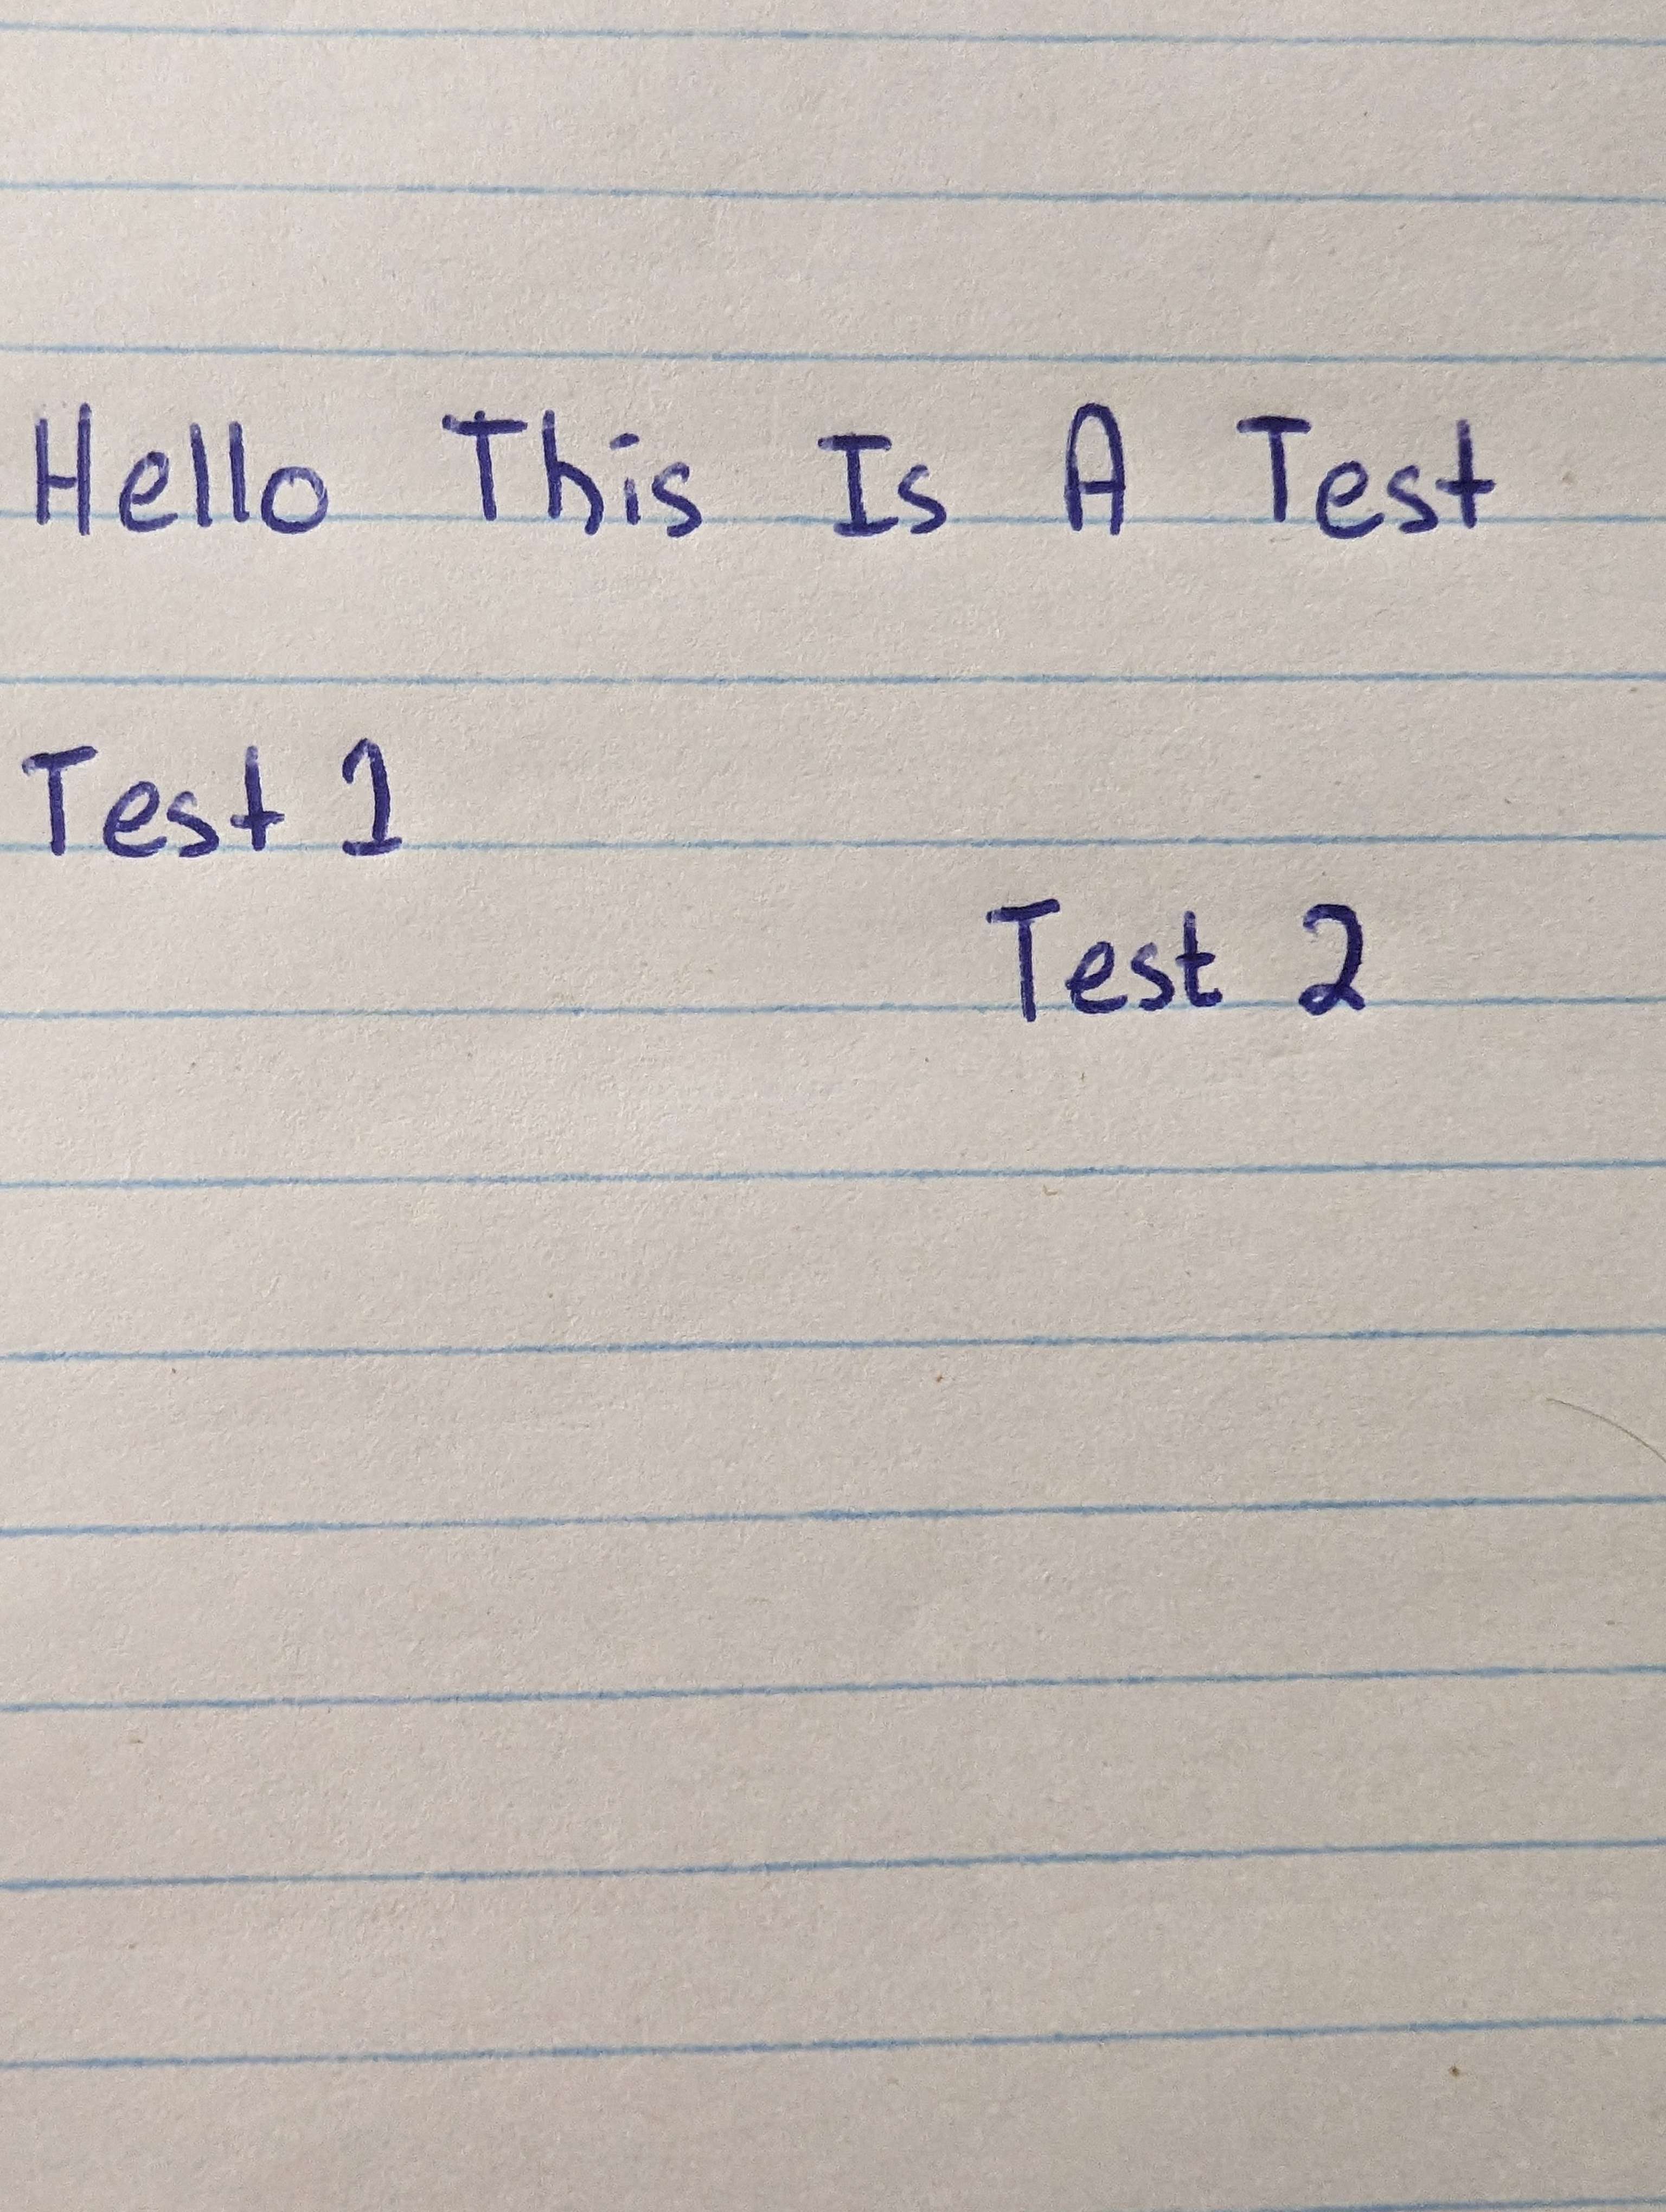 Hello This Is A Test
Test 1
Test 2